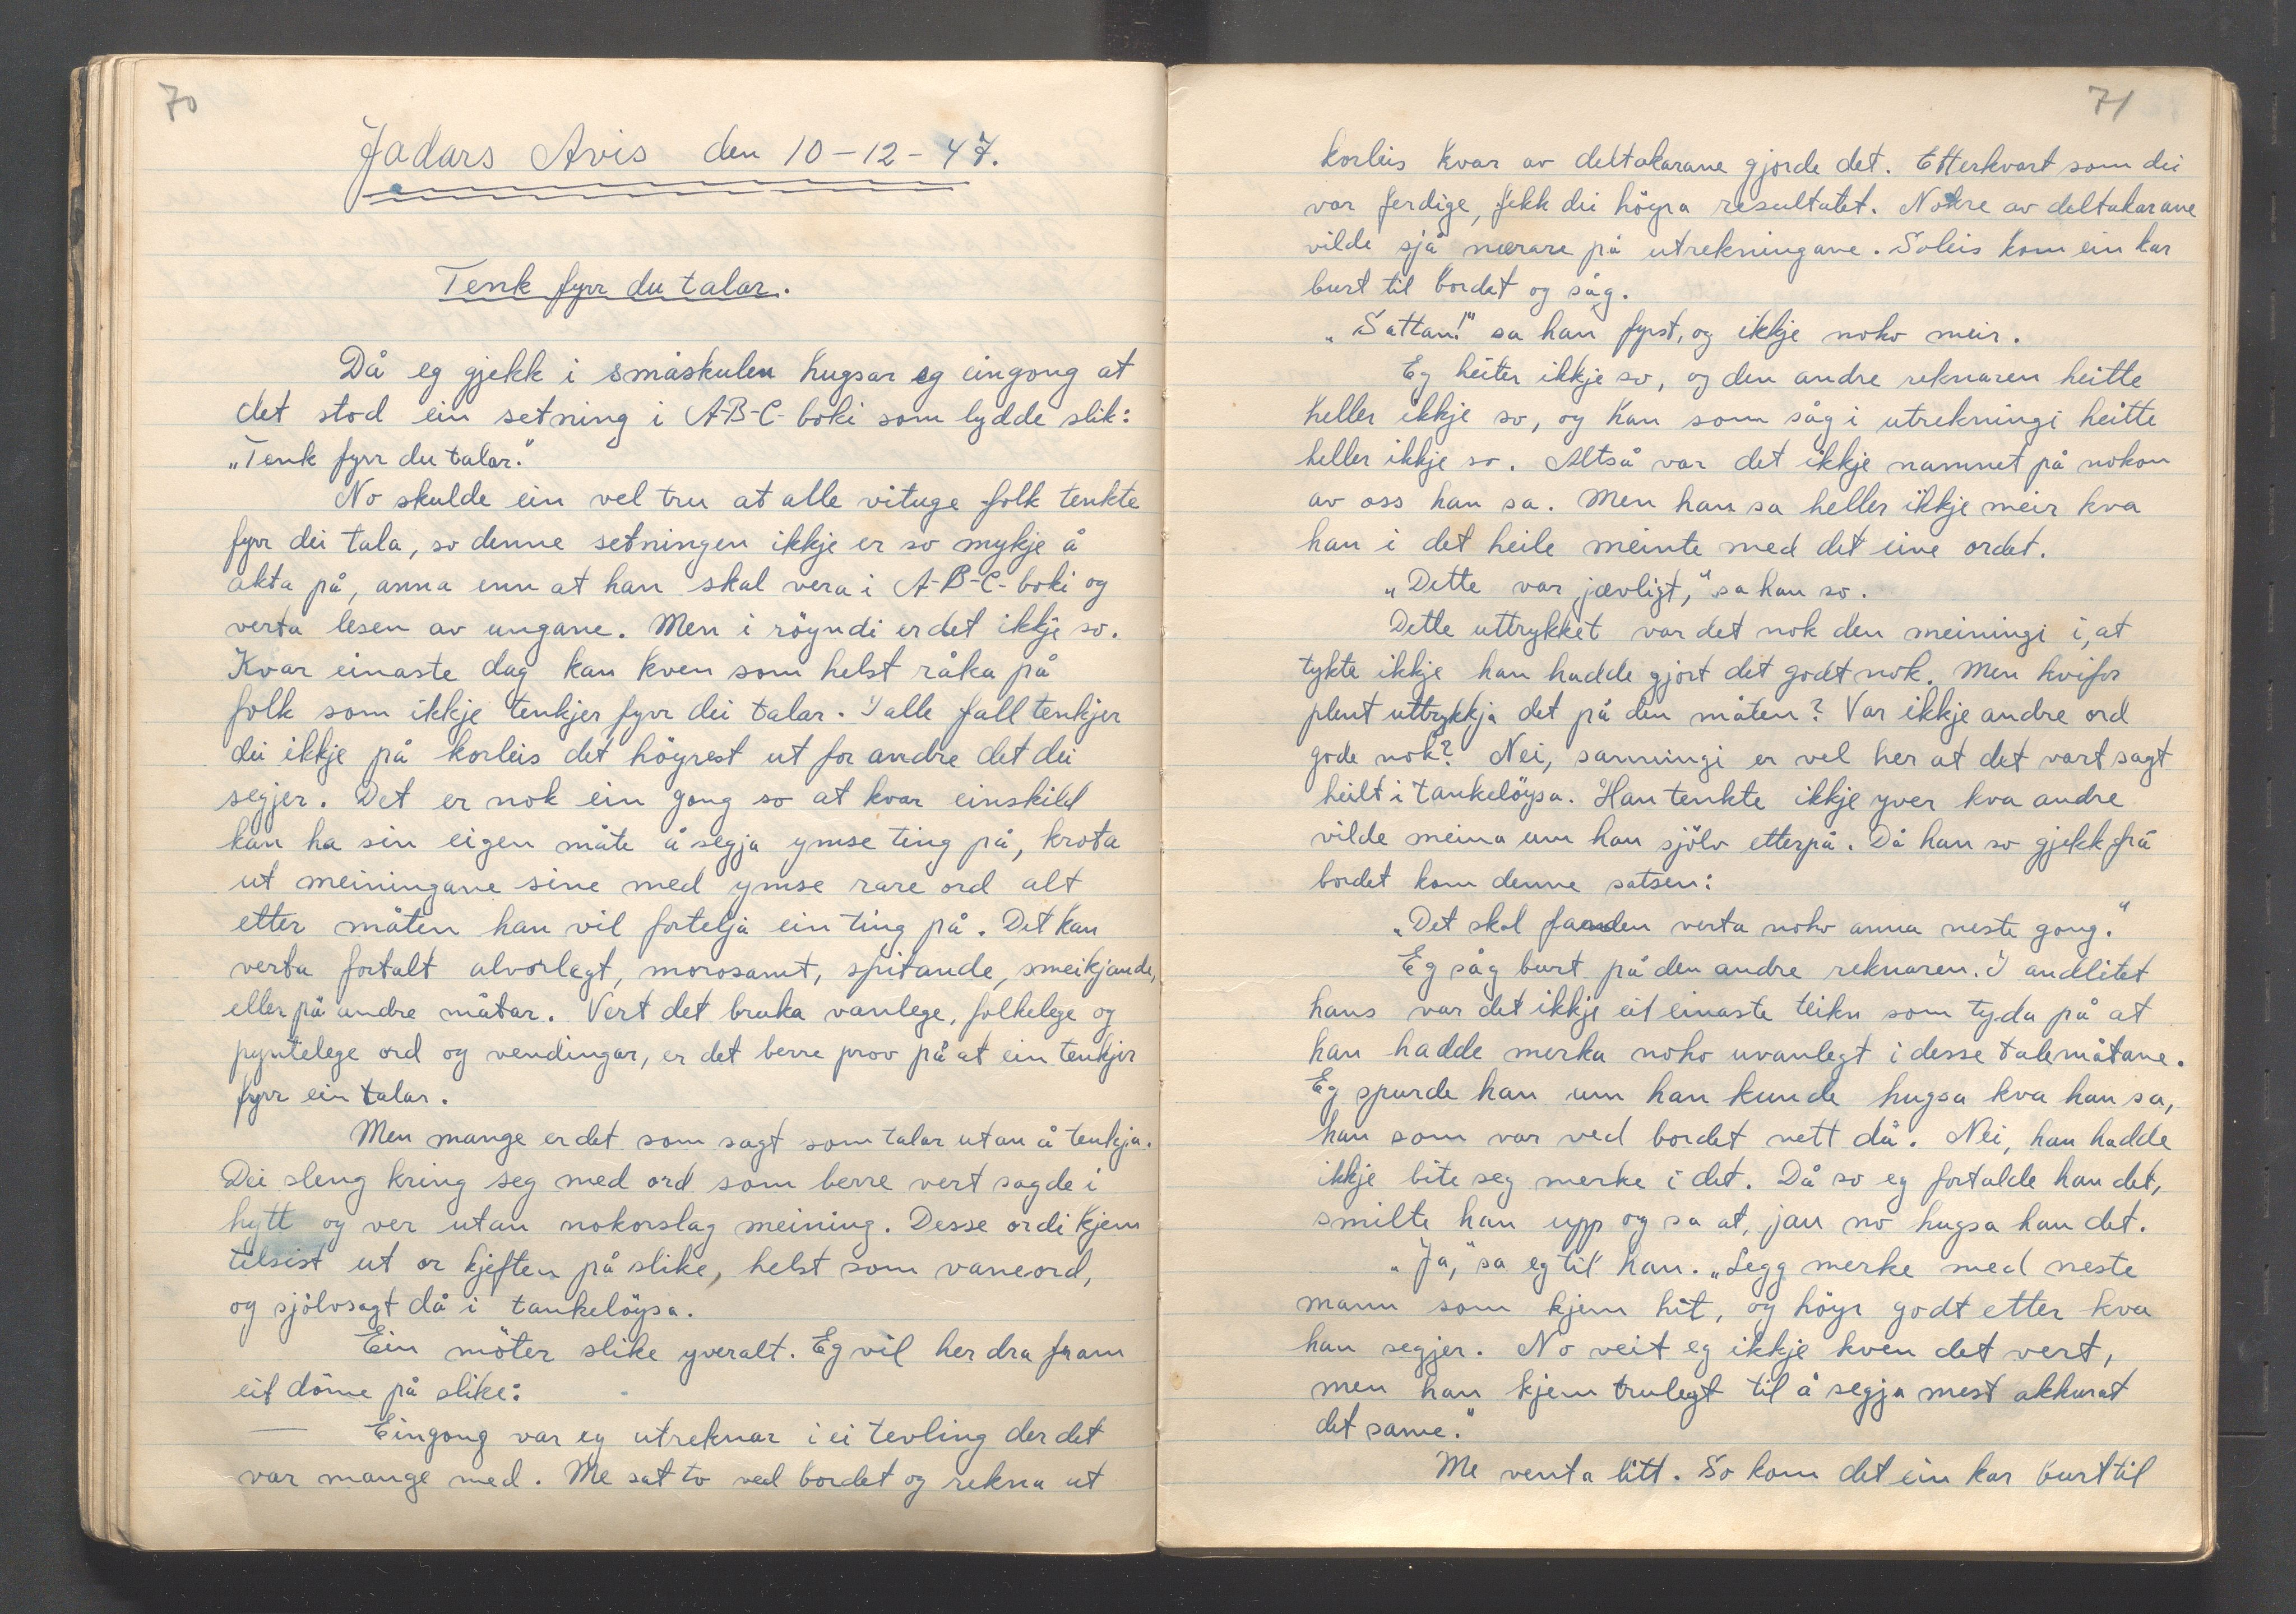 70
Jadars Avis den 10-12-47.
Tenk fyrr du talar.
Då eg gjekk i småskulen hugsar eg eingong at
det stod ein setning i A-B-C-boki som lydde slik:
„Tenk fyrr du talar."
No skulde ein vel tru at alle vituge folk tenkte
fyrr dei tala, so denne setningen ikkje er so mykje å
akta på, anna enn at han skal vera i A-B-C-boki og
verta lesen av ungane. Men i röyndi er det ikkje so.
Kvar einaste dag kan kven som helst råka på
folk som ikkje tenkjer fyrr dei talar. I alle fall tenkjer
dei ikkje på korleis det höyrest ut for andre det dei
segjer. Det er nok ein gong so at kvar einskild
kan ha sin eigen måte å segja ymse ting på, krota
ut meiningane sine med ymse rare ord alt
etter måten han vil fortelja ein ting på. Det kan
verta fortalt alvorlegt, morosamt, spitande, smeikjande,
eller på andre måtar. Vert det bruka vanlege, folkelege og
pyntelege ord og vendingar, er det berre prov på at ein tenkjer
fyrr ein talar.
Men mange er det som sagt som talar utan å tenkja.
Dei sleng kring seg med ord som berre vert sagde i
hytt og ver utan nokorslag meining. Desse ordi kjem
tilsist ut or kjeften på slike, helst som vaneord,
og sjölvsagt då i tankelöysa.
Ein möter slike yveralt. Eg vil her dra fram
eit döme på slike:
— Eingong var eg utreknar i ei tevling der det
var mange med. Me sat to ved bordet og rekna ut
71
korleis kvar av deltakarane gjorde det. Etterkvart som dei
var ferdige, fekk dei höyra resultatet. Nokre av deltakarane
vilde sjå nærare på utrekningane. Soleis kom ein kar
burt til bordet og såg.
„Sattan!" sa han fyrst, og ikkje noko meir.
Eg heiter ikkje so, og den andre reknaren heitte
heller ikkje so, og han som såg i utrekningi heitte
heller ikkje so. Altså var det ikkje namnet på nokon
av oss han sa. Men han sa heller ikkje meir kva
han i det heile meinte med det eine ordet.
„Dette var jævligt," sa han so.
Dette uttrykket var det nok den meiningi i, at
tykte ikkje han hadde gjort det godt nok. Men kvifor
plent uttrykkja det på den måten? Var ikkje andre ord
gode nok? Nei, sanningi er vel her at det vart sagt
heilt i tankelöysa. Han tenkte ikkje yver kva andre
vilde meina um han sjölv etterpå. Då han so gjekk frå
bordet kom denne satsen:
„Det skal fanden verta noko anna neste gong."
Eg såg burt på den andre reknaren. I andlitet
hans var det ikkje eit einaste teikn som tyda på at
han hadde merka noko uvanlegt i desse talemåtane.
Eg spurde han um han kunde hugsa kva han sa,
han som var ved bordet nett då. Nei, han hadde
ikkje bite seg merke i det. Då so eg fortalde han det,
smilte han upp og sa at, jau no hugsa han det.
„Ja," sa eg til han. „Legg merke med neste
mann som kjem hit, og höyr godt etter kva
han segjer. No veit eg ikkje kven det vert,
men han kjem trulegt til å segja mest akkurat
det same."
Me venta litt. So kom det ein kar burt til